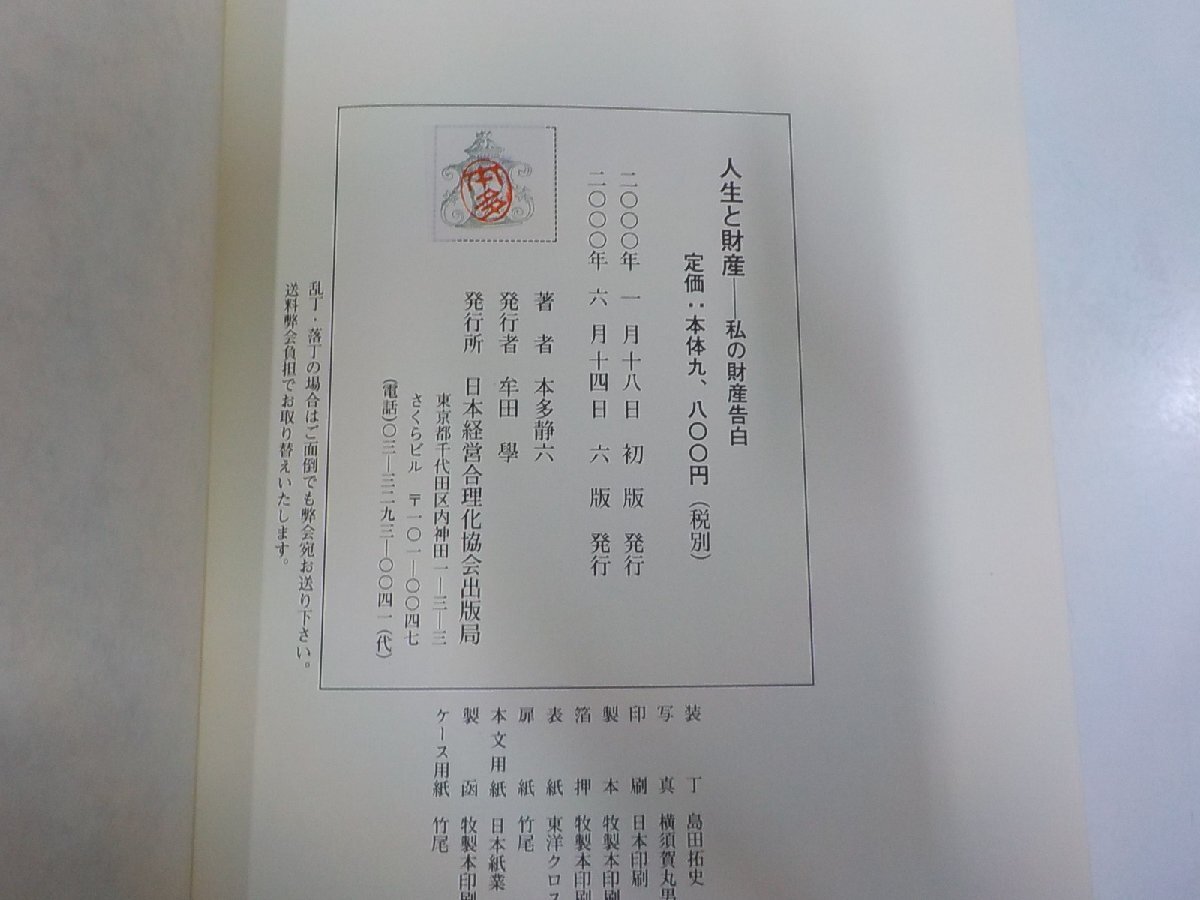 人生と財産——私の財産告白
定価:本体九、八〇〇円(税別)
二〇〇〇年 一 月十八日 初 版 発行
二〇〇〇年 六 月十四日 六 版 発行
著 者 本多静六
発行者 牟田 學
発行所 日本経営合理化協会出版局
東京都千代田区内神田一—三—三
さくらビル 〒一〇一—〇〇四七
(電話)〇三—三二九三—〇〇四一(代)
本多
乱丁・落丁の場合はご面倒でも弊会宛お送り下さい。
送料弊会負担でお取り替えいたします。
装 丁 島田拓史
写 真 横須賀丸男
印 刷 日本印刷
製 本 牧製本印刷
箔 押 牧製本印刷
表 紙 東洋クロス
扉 紙 竹尾
本文用紙 日本紙業
製 函 牧製本印刷
ケース用紙 竹尾